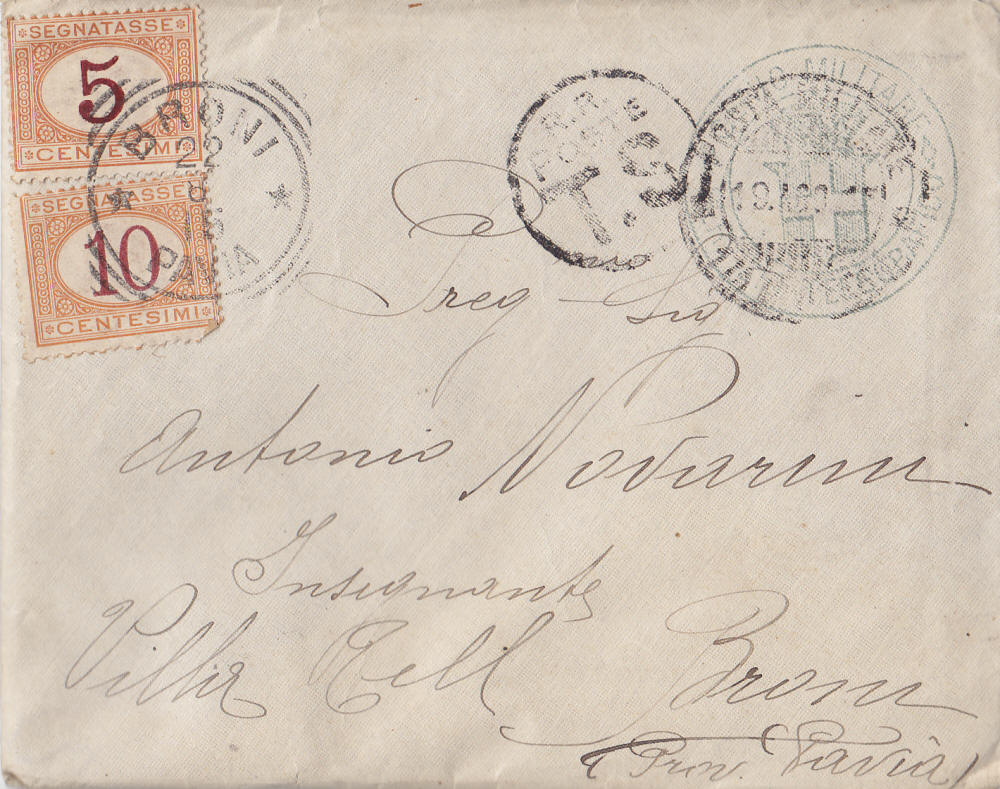 SEGNATASSE
5
CENTESIMI
SEGNATASSE
10
CENTESIMI
BRONI
22
8
15
PAVIA
R.R.
POSTE
T.S.
POSTA MILITARE
19.
Preg Sig
Antonio Novarini
Insegnante
Villa Tell Broni
(Prov. Pavia)